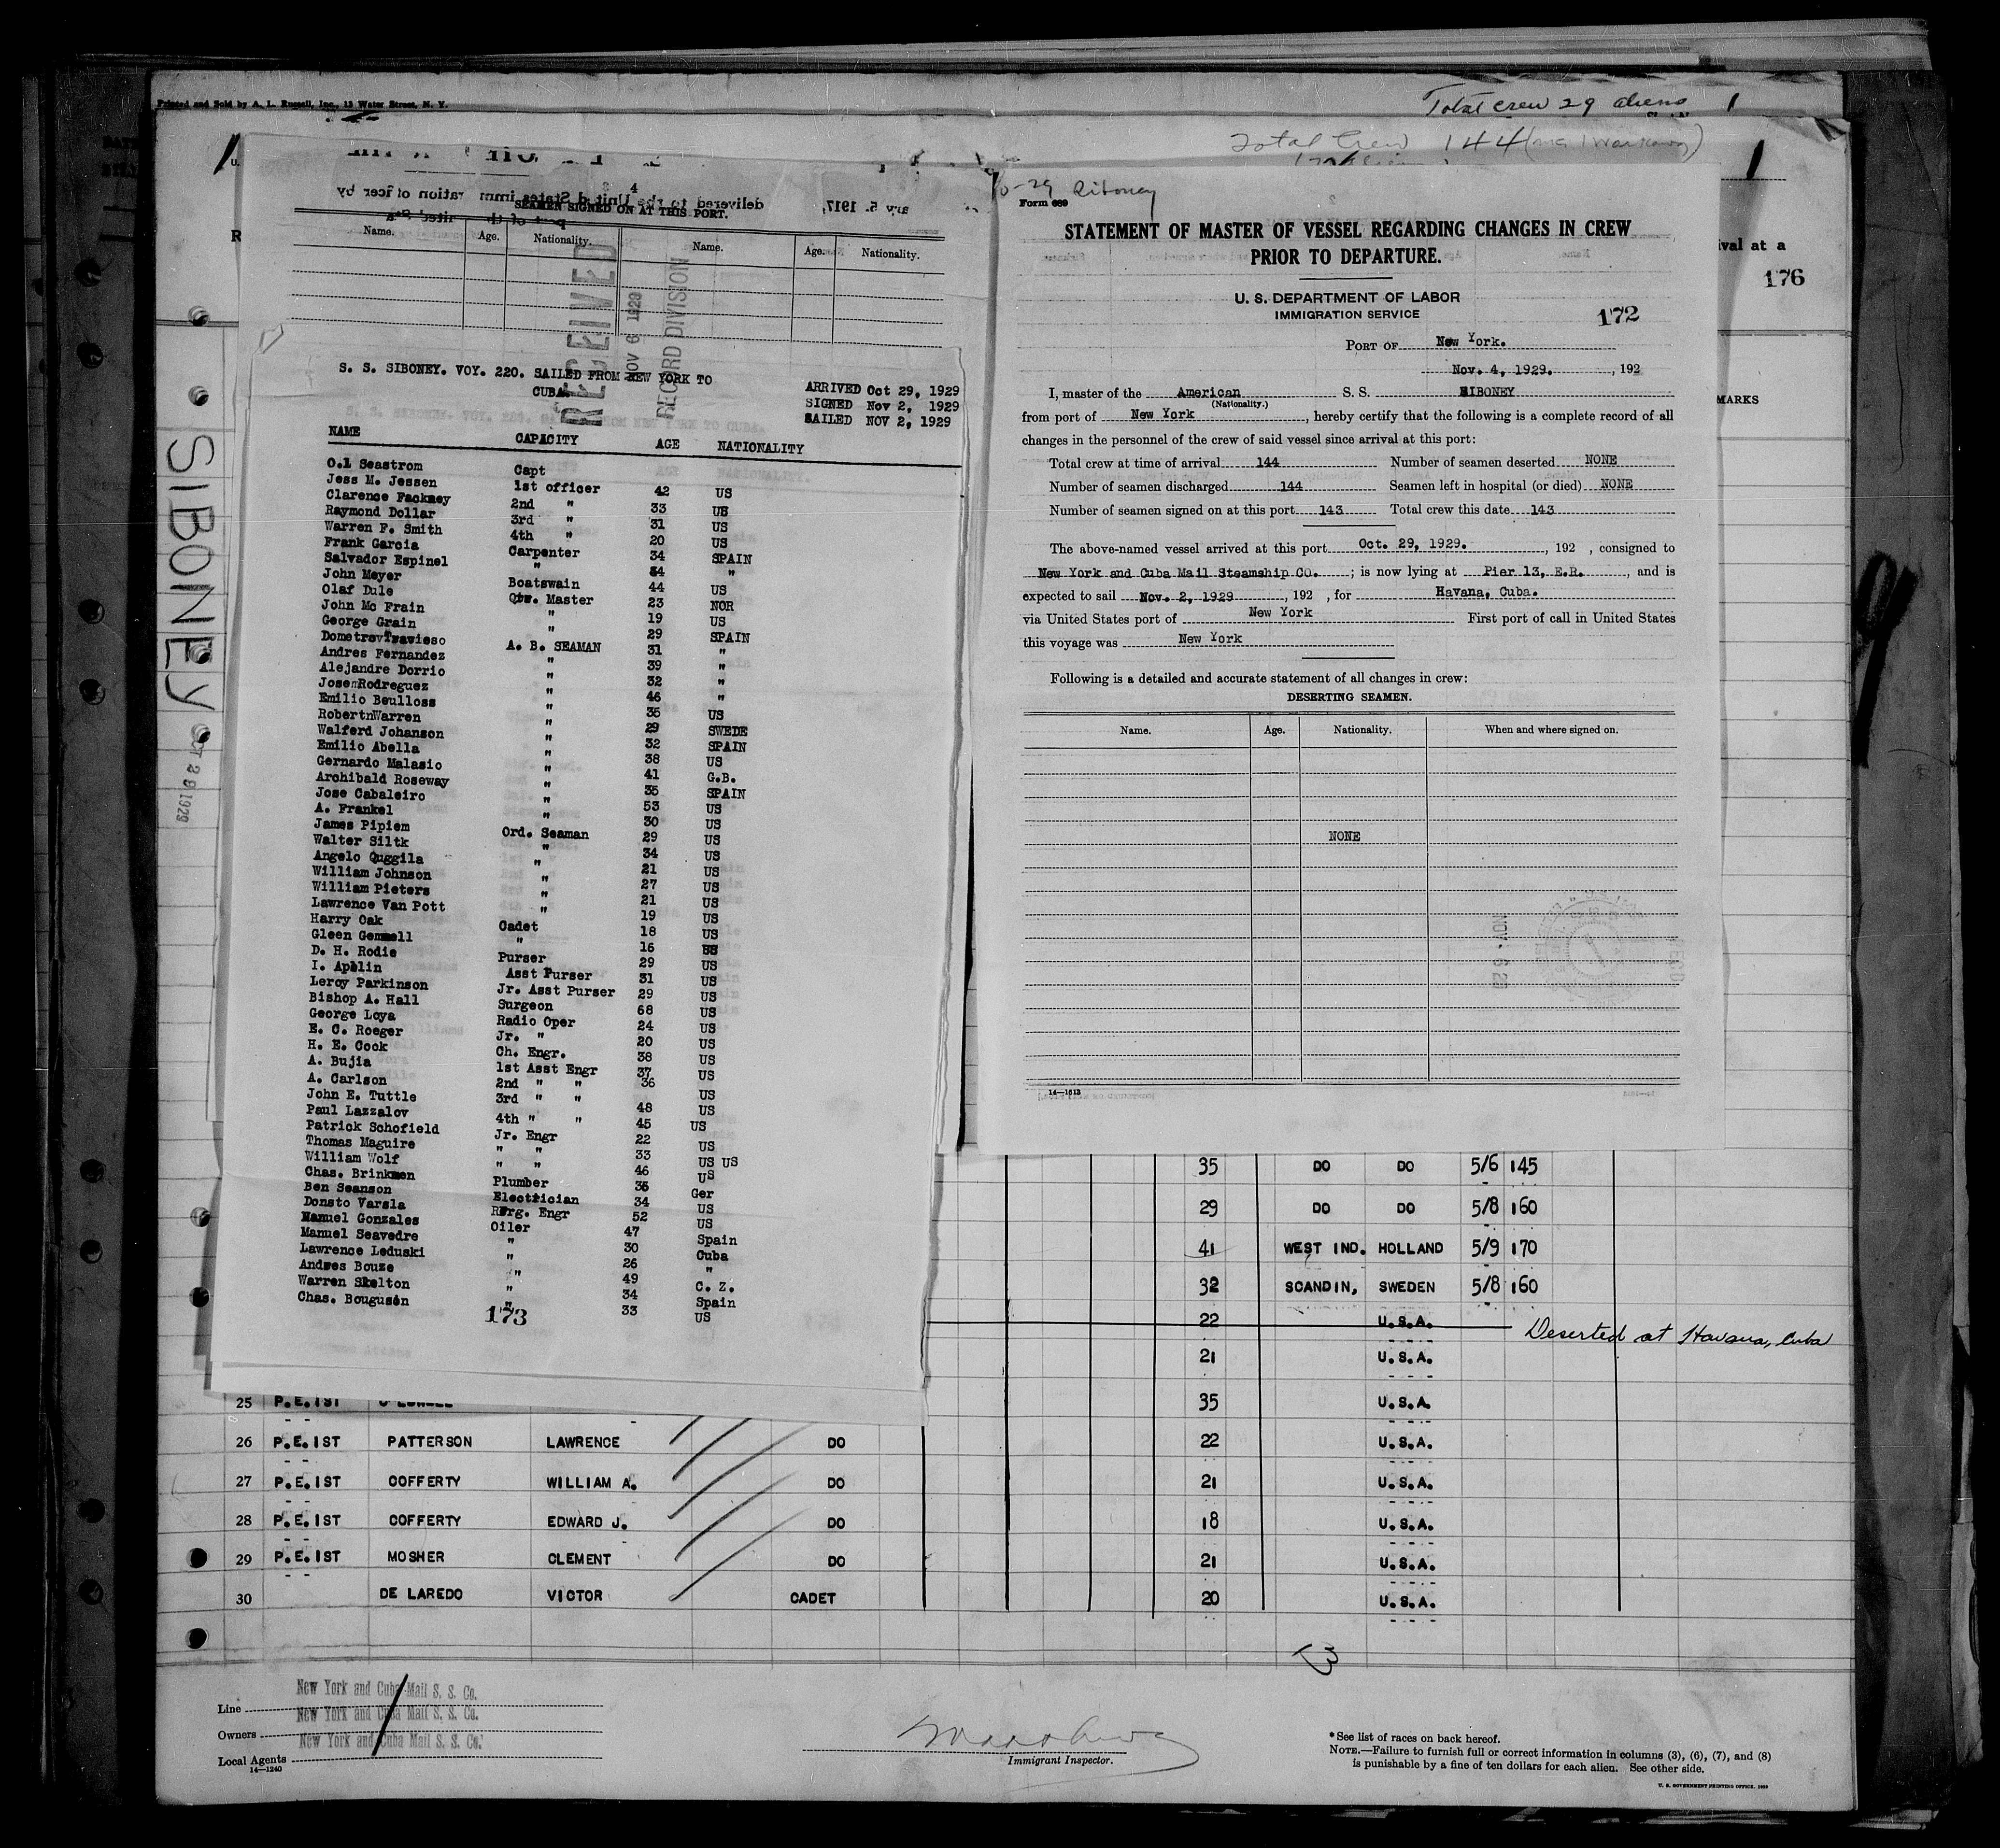 Printed and Sold by A. L. Russell, Inc., 13 Water Street, N. Y.
Total crew 29 aliens
Total Crew 144
SIBONEY
OCT 29 1929
4
SEAMEN SIGNED ON AT THIS PORT.
Name. Age. Nationality. Name. Age. Nationality.
RECEIVED
NOV 6 1929
RECORD DIVISION
S. S. SIBONEY. VOY. 220. SAILED FROM NEW YORK TO
CUBA.
ARRIVED Oct 29, 1929
SIGNED Nov 2, 1929
SAILED NOV 2, 1929
NAME CAPACITY AGE NATIONALITY
O.L Seastrom Capt
Jess M. Jessen 1st officer 42 US
Clarence Fackney 2nd " 33 US
Raymond Dollar 3rd " 31 US
Warren F. Smith 4th " 20 US
Frank Garcia Carpenter 34 SPAIN
Salvador Espinel " 54 "
John Meyer Boatswain 44 US
Olaf Dule Qtr. Master 23 NOR
John Mc Frain " 19 US
George Grain " 29 SPAIN
Dometrev Travieso A. B. SEAMAN 31 "
Andres Fernandez " 39 "
Alejandre Dorrio " 32 "
Jose Rodreguez " 46 "
Emilio Beulloss " 35 US
Robert Warren " 29 SWEDE
Walferd Johanson " 32 SPAIN
Emilio Abella " 38 US
Gernardo Malasio " 41 G.B.
Archibald Roseway " 35 SPAIN
Jose Cabaleiro " 53 US
A. Frankel " 30 US
James Pipiem Ord. Seaman 29 US
Walter Siltk " 34 US
Angelo Quggila " 21 US
William Johnson " 27 US
William Pieters " 21 US
Lawrence Van Pott " 19 US
Harry Oak Cadet 18 US
Gleen Gemmell " 16 US
D. H. Rodie Purser 29 US
I. Aplin Asst Purser 31 US
Leroy Parkinson Jr. Asst Purser 29 US
Bishop A. Hall Surgeon 68 US
George Loya Radio Oper 24 US
E. C. Roeger Jr. " 20 US
H. E. Cook Ch. Engr. 38 US
A. Bujia 1st Asst Engr 37 US
A. Carlson 2nd " " 36
John E. Tuttle 3rd " " 48 US
Paul Lazzalov 4th " " 45 US
Patrick Schofield Jr. Engr 22 US
Thomas Maguire " " 33 US
William Wolf " " 46 US US
Chas. Brinkmen Plumber 36 US
Ben Seanson Electrician 34 Ger
Donsto Varsla Rfrg. Engr 52 US
Manuel Gonzales Oiler 47 US
Manuel Seavedre " 30 Spain
Lawrence Leduski " 26 Cuba
Andres Bouze " 49 "
Warren Skelton " 34 C. Z.
Chas. Bougusen " 33 Spain
US
173
Siboney
Form 689
STATEMENT OF MASTER OF VESSEL REGARDING CHANGES IN CREW
PRIOR TO DEPARTURE.
U. S. DEPARTMENT OF LABOR
IMMIGRATION SERVICE
172
PORT OF New York.
Nov. 4, 1929. , 192
I, master of the American S. S. SIBONEY
(Nationality.)
from port of New York , hereby certify that the following is a complete record of all
changes in the personnel of the crew of said vessel since arrival at this port:
Total crew at time of arrival 144 Number of seamen deserted NONE
Number of seamen discharged 144 Seamen left in hospital (or died) NONE
Number of seamen signed on at this port 143 Total crew this date 143
The above-named vessel arrived at this port Oct. 29, 1929. , 192 , consigned to
New York and Cuba Mail Steamship CO. ; is now lying at Pier 13, E.R. , and is
expected to sail Nov. 2, 1929 , 192 , for Havana, Cuba.
via United States port of New York First port of call in United States
this voyage was New York
Following is a detailed and accurate statement of all changes in crew:
DESERTING SEAMEN.
Name. Age. Nationality. When and where signed on.
NONE
NOV. 6 29
14—1613
ival at a
176
MARKS
35 DO DO 5/6 145
29 DO DO 5/8 160
41 WEST IND. HOLLAND 5/9 170
32 SCANDIN, SWEDEN 5/8 160
22 U.S.A. Deserted at Havana, Cuba
21 U.S.A.
25 P.E.1ST 35 U.S.A.
26 P.E.1ST PATTERSON LAWRENCE DO 22 U.S.A.
27 P.E.1ST COFFERTY WILLIAM A. DO 21 U.S.A.
28 P.E.1ST COFFERTY EDWARD J. DO 18 U.S.A.
29 P.E.1ST MOSHER CLEMENT DO 21 U.S.A.
30 DE LAREDO VICTOR CADET 20 U.S.A.
Line New York and Cuba Mail S. S. Co.
Owners New York and Cuba Mail S. S. Co.
Local Agents New York and Cuba Mail S. S. Co.
14—1240
Immigrant Inspector.
*See list of races on back hereof.
NOTE.—Failure to furnish full or correct information in columns (3), (6), (7), and (8)
is punishable by a fine of ten dollars for each alien. See other side.
U. S. GOVERNMENT PRINTING OFFICE. 1929